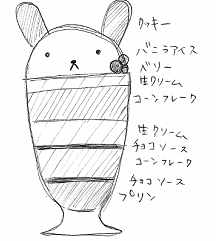 クッキー
バニラアイス
ベリー
生クリーム
コーンフレーク
生クリーム
チョコソース
コーンフレーク
チョコソース
プリン